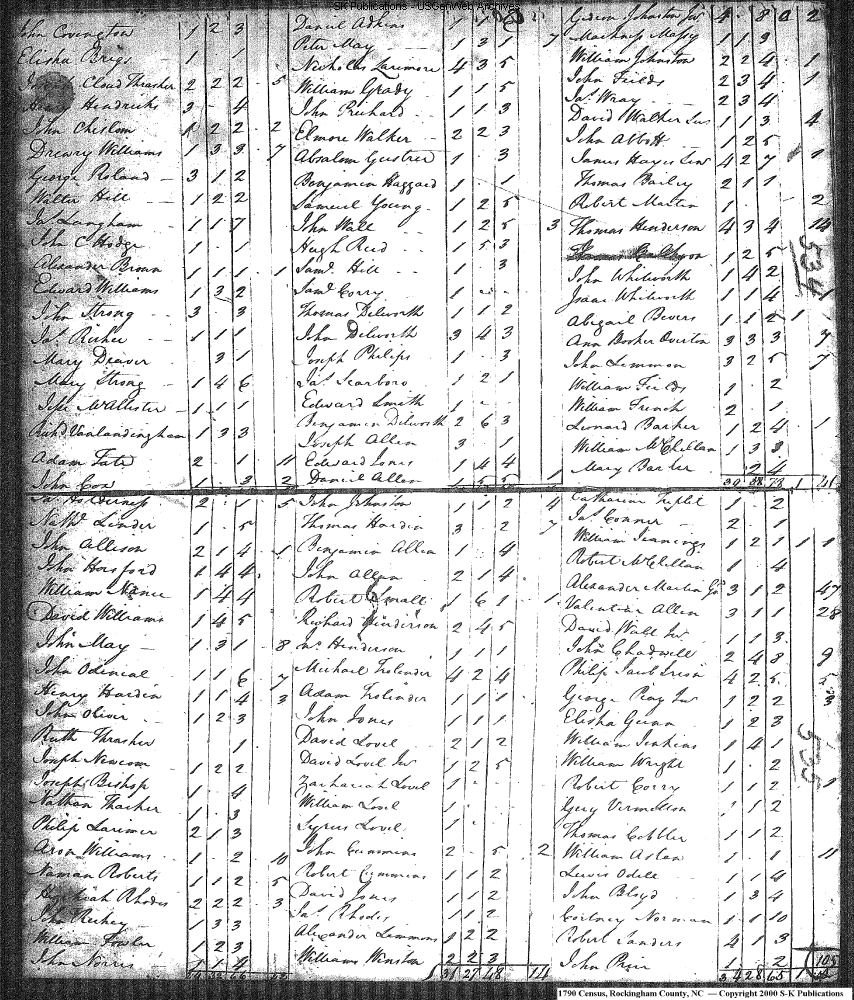 S-K Publications - USGenWeb Archives
John Covington 1 2 3
Elisha Brigs 1 . 1
Cloud Thrasher 2 2 2 . 5
Hendricks 3 . 4
John Chislom 1 2 2 . 2
Drewry Williams 1 3 3 . 7
George Roland 3 1 2
Willie Hill 1 2 2
Jas Langham 1 1 7
John C Hodge 1 . 1
Alexander Brown 1 1 1 . 1
Edward Williams 1 3 2
John Strong 3 . 3
Jas Richee 1 1 1
Mary Deaver . 3 1
Mary Strong 1 4 6
McAllister 1 1 1
Richd Vanlandingham 1 3 3
Adam Tate 2 . 1 . 11
John Cox 1 . 3 . 2
Daniel Adkins 1 1
Peter May 1 3 1 . 7
Nicholas Larimore 4 3 5
William Grady 1 1 5
John Prichard 1 1 3
Elmore Walker 2 2 3
Absalom 1 . 3
Benjamin Haggard 1 . 1
Samuel Young 1 2 5
John Wall 1 2 5 . 3
Hugh Reed 1 5 3
Saml Hill 1 . 3
Saml Corry 1
Thomas Dilworth 1 1 2
John Dilworth 3 4 3
Joseph Philips 1 . 3
Jas Scarboro 1 2 1
Edward Smith 1
Benjamin Dilworth 2 6 3
Joseph Allen . 3 . 1
Edward Jones 1 4 4
Daniel Allen 1 5 5 . 1
Gideon Johnston Jur 4 . 8 0 2
1 1 3
William Johnston 2 2 4 . 1
John Fields 2 3 4 . 1
Jas Wray 2 3 4
David Walker 1 1 3 . 4
John Abbott 1 2 5
James Hayes 4 2 7 . 1
Thomas Bailey 2 1 1
Robert Martin 1 . . 2
Thomas Henderson 4 3 4 . 14
1 2 5
John Whitworth 1 4 2
Isaac Whitworth 1 1 4 . 1
Abigail Bevers 1 1 2 1
Ann Booker Overton 3 3 3 . 7
John Lemmon 3 2 5 . 7
William Fields 1 . 2
William French 2 . 1
Leonard Barker 1 2 4 . 1
William McClellan 1 3 3
Mary Barker . 2 4
39 38 73 1 41
534
Holderness 2 . 1 . 5
Nathl Linder 1 . 5
John Allison 2 1 4 . 1
John Horsford 1 4 4
William Nance 1 4 4
David Williams 1 4 5
John May 1 3 1 . 8
John Odeneal 1 1 6 . 7
Henry Hardin 1 1 4 . 3
John Oliver 1 2 3
Ruth Thrasher . . 1
Joseph Newcom 1 2 2
Joseph Bishop 1 . 4
Nathan Thacker 1 . 3
Philip Larimer 2 1 3
Aron Williams 1 . 2 . 10
Naman Roberts 1 1 2 . 5
Rhodes 2 2 2 . 3
John Richey 1 3 3
William Fowler 1 2 3
John Norris 1 1 4
John Johnston 1 1 2 . 4
Thomas Hardin 3 . 2 . 7
Benjamin Allen 1 . 4
John Allen 2 1 4
Robert Small 1 6 1 . 1
Richard Henderson 2 4 5
Henderson 1 1 1
Michael Trolinder 4 2 4
Adam Trolinder 1 1 1
John Jones 1 1 1
David Lovel 2 1 2
David Lovel Jur 1 2 5
Zachariah Lovel 1
William Lovel 1
Syrus Lovel 1
John Cummins 2 . 5 . 2
Robert Cummins 1 1 2
David Jones 1 1 2
Jas Rhodes 1 1 2
Alexander Lemmons 1 2 2
William Winston 2 2 3
31 27 48 14
Catharine Triplet 1 . 2
Jas Conner 2 . 1
William Jennings 1 2 1 1 1
Robert McClellan 1 . 4
Alexander Martin 3 1 2 . 47
Valentine Allen 3 1 1 . 28
David Wall Jur 1 1 3
John Chadwell 2 4 8 . 9
Philip Jacob 4 2 5 . 5
George Ray Jur 1 2 2 . 3
Elisha 1 2 3
William Jenkins 1 4 1
William Wright 1 . 2
Robert Corry 1 1 2 . 1
Vermillion 1 1 2
Thomas Cobbler 1 1 2
William Aslan 1 1 1 . 11
Lewis Odell 1 1 4
John Bloyd 1 3 4
Cortney Norman 1 1 10
Robert Sanders 4 1 3
John 1 . 2
34 28 65 1 105
535
1790 Census, Rockingham County, NC — Copyright 2000 S-K Publications